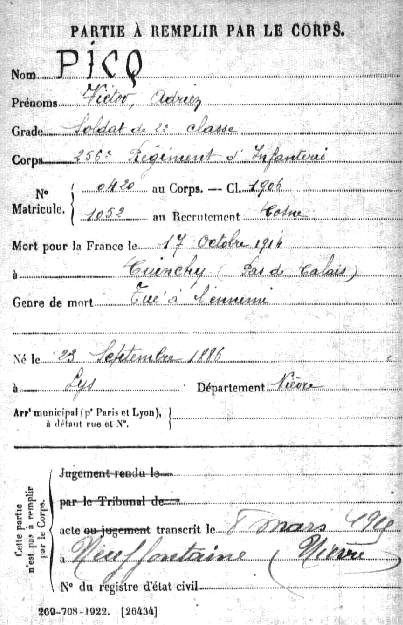 PARTIE À REMPLIR PAR LE CORPS.
Nom PICQ
Prénoms Victor,
Grade Soldat de 2e classe
Corps 256e Régiment d'Infanterie
Nº Matricule. 0420 au Corps. — Cl. 1906
1052 au Recrutement Cosne
Mort pour la France le 17 Octobre 1914
à Cuinchy (Pas de Calais)
Genre de mort Tué à l'ennemi
Né le 23 Septembre 1886
à Lys Département Nièvre
Arrt municipal (pr Paris et Lyon),
à défaut rue et Nº.
Cette partie
n'est pas à remplir
par le Corps.
Jugement rendu le
par le Tribunal de
acte ou jugement transcrit le 8 mars
à Neuffontaine (Nièvre
Nº du registre d'état civil
269-708-1922. [26434]